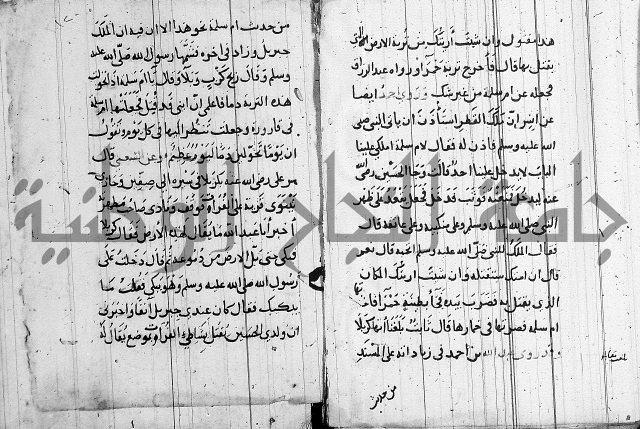 هذا مقتول وان شئت أريتك من تربة الارض التي
يقتل بها قال فأخرج تربة حمرا ورواه عبد الرزاق
فجعله عن ام سلمة من غير شك وروى احمد ايضا
عن انس ان ملك القطر استأذن ان ياتي النبي صلى
الله عليه وسلم فاذن له فقال لام سلمة املكي علينا
الباب لا يدخل علينا احد قال وجا الحسين رضى الله
عنه ليدخل فمنعته فوثب فدخل فجعل يقعد على ظهر
النبي صلى الله عليه وسلم وعلى منكبه وعلى عاتقه قال
فقال الملك للنبي صلى الله عليه وسلم اتحبه قال نعم
قال ان امتك ستقتله وان شئت اريتك المكان
الذي يقتل به فضرب بيده فجا بطينة حمرا فاخذتها
ام سلمة فصرتها في خمارها قال ثابت بلغنا انها كربلا
وقد روى عبد الله بن احمد في زياداته على المسند
من حديث
من حديث ام سلمة نحو هذا الا ان فيه ان الملك
جبريل وزاد في اخره فشمها رسول الله صلى الله عليه
وسلم وقال ريح كرب وبلا وقال يا ام سلمة اذا تحولت
هذه التربة دما فاعلمي ان ابني قد قتل فجعلتها ام سلمة
في قارورة وجعلت تنظر اليها في كل يوم وتقول
ان يوما تحولين دما ليوم عظيم وعن الشعبي قال
مر علي رضى الله عنه بكربلا في مسيره الى صفين وحاذى
نينوى قرية على الفرات فوقف ونادى
اخبر أبا عبد الله ما يقال لهذه الارض فقال كربلا
فبكى حتى بل الارض من دموعه ثم قال دخلت على
رسول الله صلى الله عليه وسلم وهو يبكي فقلت ما
يبكيك فقال كان عندي جبريل آنفا واخبرني
ان ولدي الحسين يقتل بشاطئ الفرات بموضع يقال له
جامعة النجاح الوطنية